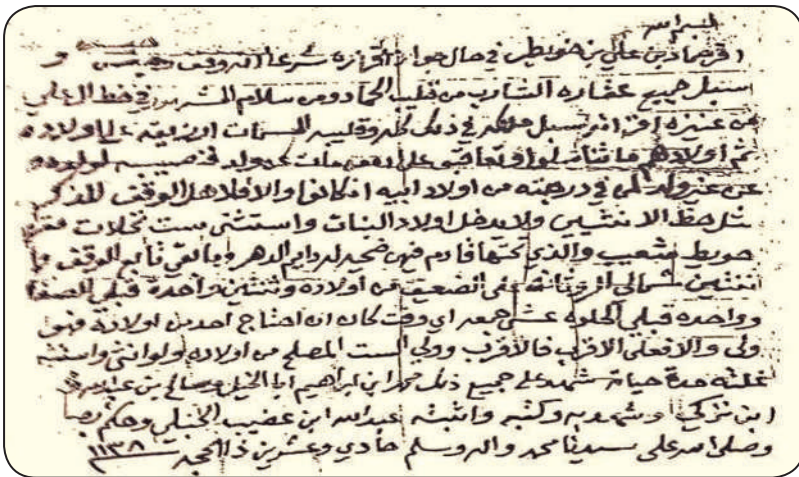 بسم الله
اقر حماد بن علي بن ضويطي في حال جواز اقراره شرعا انه وقف وحبس و
سبل جميع عقاره الشارب من قليب الحمادو من سلام في خط العلي
من عنيزه اقر انه سبل ملكه في ذلك كله وقليبه اربعة على اولاده
ثم اولادهم ما تناسلوا وتعاقبو على ان من مات عن ولد فنصيبه لولده و
عن غير ولد في درجته من اولاد ابيه ان كانوا والا فلاهل الوقف للذكر
مثل حظ الانثيين ولا يدخل اولاد البنات واستثنى ست نخلات
حويط شعيب والذي تحتها فادم فهن ضحيه له دايم الدهر وما بقي تابع الوقف
ثنتين شمالي على الضعيف من اولاده وثنتين واحدة قبلي الصفا
وواحده قبلي الحلوه عشى جمعه اي وقت كان ان احتاج احد من اولاده فهو
ولى والا فعلى الاقرب فالاقرب وولي الست المصلح من اولاده ولو انثى واستثنى
غلته مدة حياته شهد على جميع ذلك محمد ابن ابراهيم ابا الخيل وصالح بن عبدالله
ابن تركي وشهد به وكتبه واثبته عبدالله ابن عضيب الحنبلي وحكم
وصلى الله على سيدنا محمد واله وسلم حادي وعشرين ذا الحجه ١١٣٨